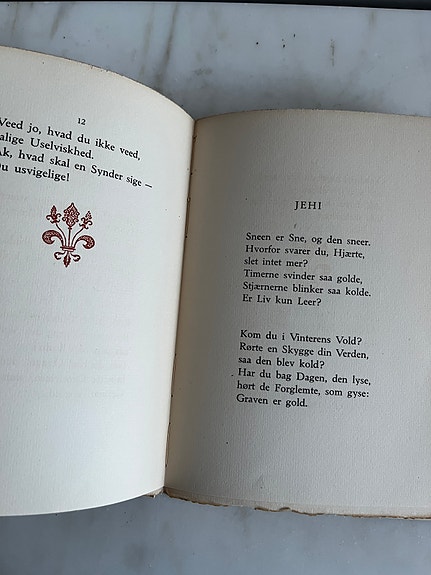 12
Veed jo, hvad du ikke veed,
alige Uselviskhed.
Ak, hvad skal en Synder sige —
Du usvigelige!
JEHI
Sneen er Sne, og den sneer.
Hvorfor svarer du, Hjærte,
slet intet mer?
Timerne svinder saa golde,
Stjærnerne blinker saa kolde.
Er Liv kun Leer?
Kom du i Vinterens Vold?
Rørte en Skygge din Verden,
saa den blev kold?
Har du bag Dagen, den lyse,
hørt de Forglemte, som gyse:
Graven er gold.